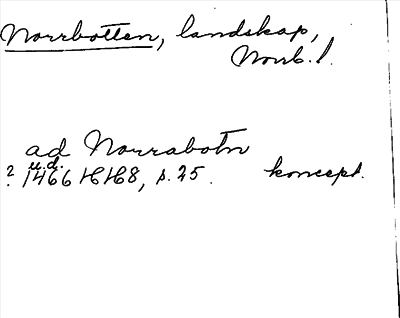 Norrbotten, landskap,
Norrb. l.
ad Norrabotn
u.d.
? 1466 HH8, s. 25. koncept.